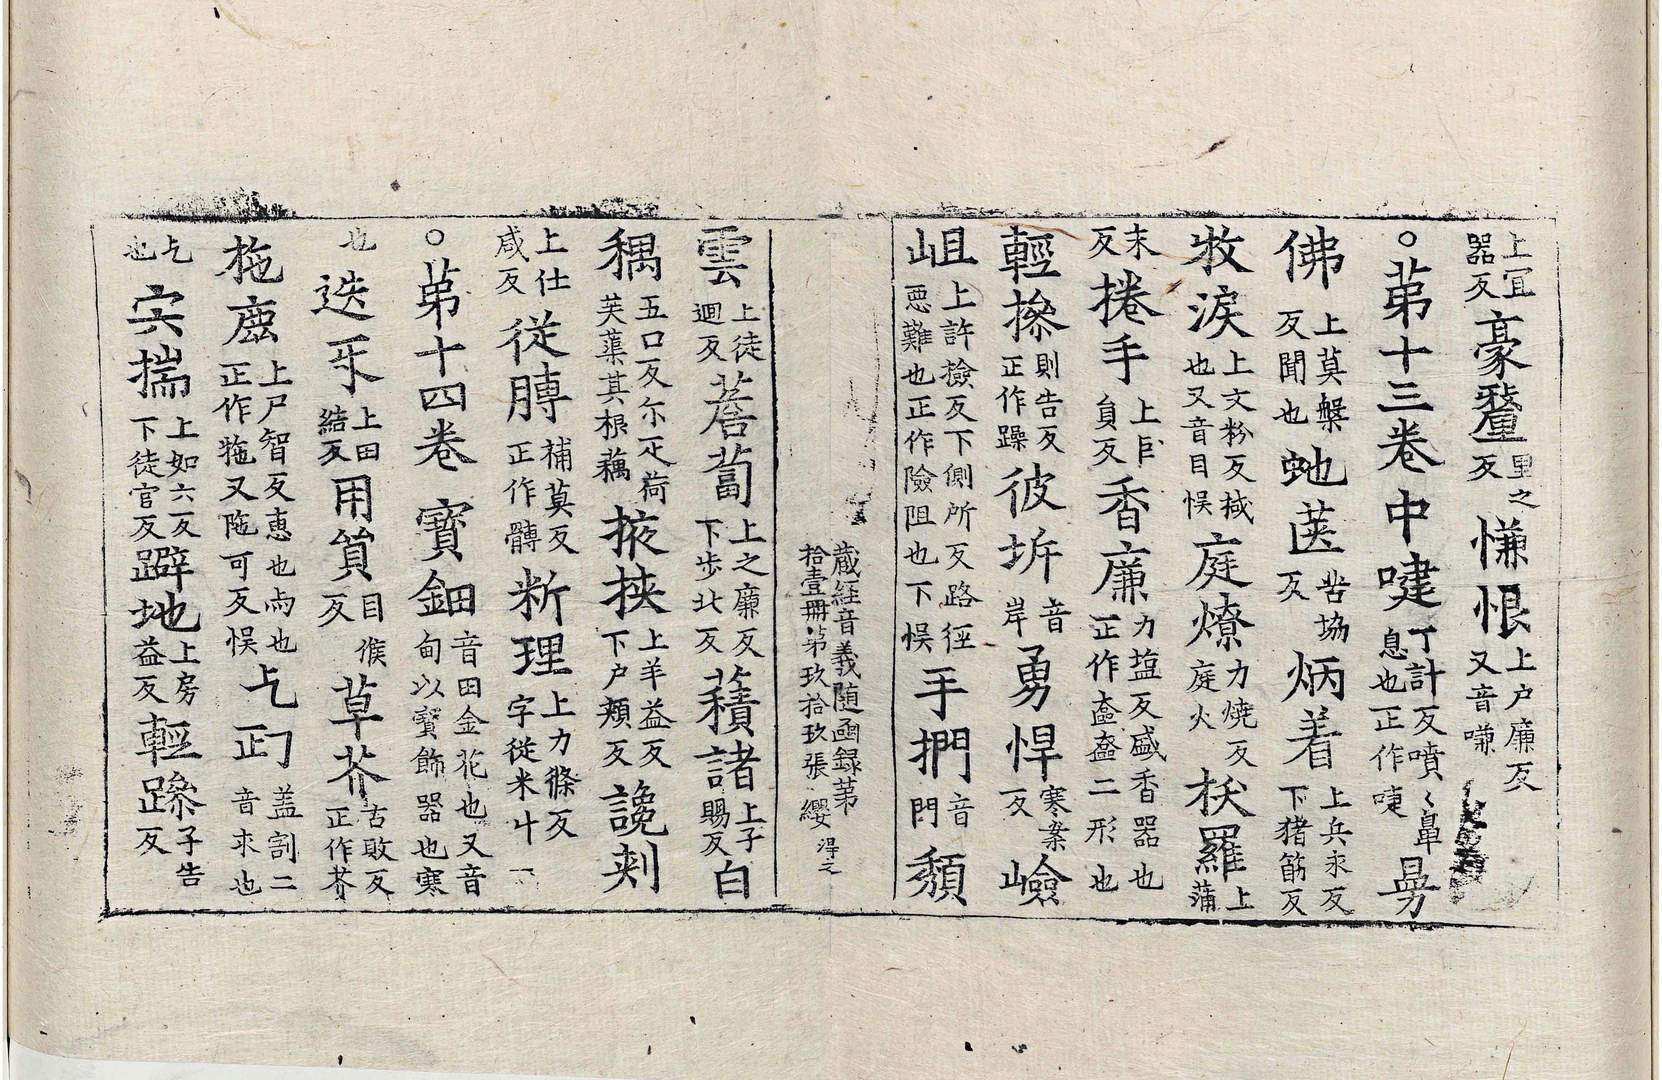 上宜器反豪氂里之反慊恨上户廉反又音嗛
○苐十三巻中嚏丁計反噴〻鼻息也正作啑㬰
佛上莫槃反聞也虵医苦協反炳着上兵永反下猪筯反
牧淚上文粉反拭也又音目悮庭燎力燒反庭火栿羅上蒲
末反捲手上巨負反香廉力塩反盛香器也正作匳奩二形也
輕摻則告反正作躁彼坼音岸勇悍寒案反嶮
岨上許撿反下側所反路徑𢙣難也正作險阻也下悮手捫音門頽
蔵経音義随函録苐
拾壹冊第玖拾玖張 纓 淂之
雲上徒迴反薝蔔上之廉反下步北反積諸上子賜反白
耦五口反尓疋荷芙蕖其根藕掖挾上羊益反下户頰反讒刾
上仕咸反從膊補莫反正作髆断理上力條反字從米斗
○苐十四巻 寳鈿音田金花也又音甸以寳飾器也寒
也迭㸦上田結反用貿目候反草芥古敗反正作芥
拖㢑上尸智反惠也㐲也正作㧱又陁可反悮乞匃盖割二音求也
乞也宍揣上如六反下徒官反避地上房益反輕躁子告反